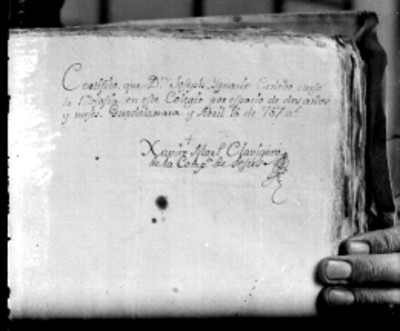 Certifico, que Dn. Joseph Ygnacio cursó
la Filosofia en este Colegio por espacio de dos años
y medio. Guadalaxara y Abril 16 de 767
Xavier Mar. Clavigero
de la Comp. de Jesus